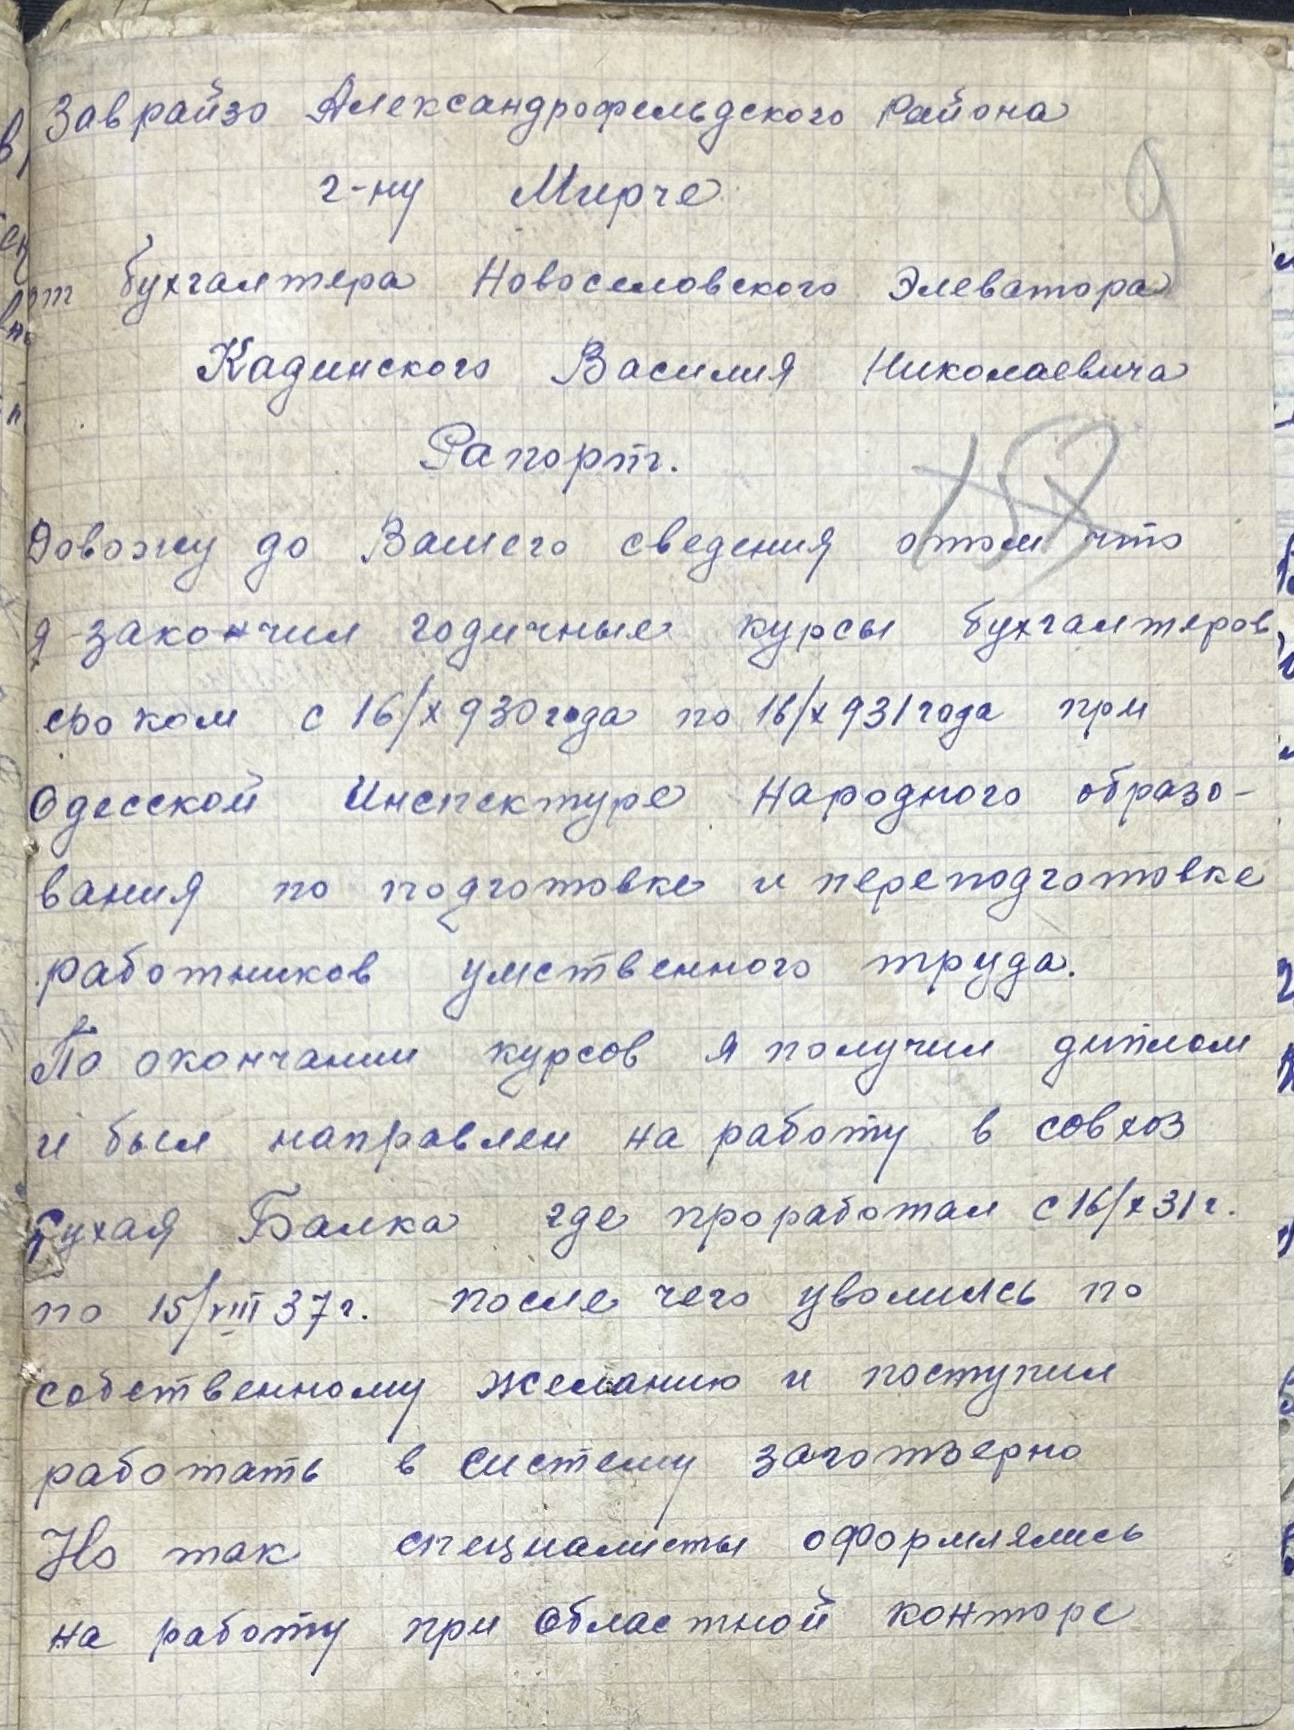 Заврайзо Александрофельдского Района
г-ну Мирче
от бухгалтера Новоселовского Элеватора
Кадинского Василия Николаевича
Рапорт.
Довожу до Вашего сведения отом что
я закончил годичные курсы бухгалтеров
сроком с 16/х 930 года по 16/х 931 года при
Одесской Инспектуре Народного образо-
вания по подготовке и переподготовке
работников умственного труда.
По окончании курсов я получил диплом
и был направлен на работу в совхоз
Сухая Балка где проработал с 16/х 31 г.
по 15/VIII 37 г. после чего уволилсь по
собственному желанию и поступил
работать в систему заготзерно
Но так специалисты оформлялись
на работу при Областной конторе
9
157